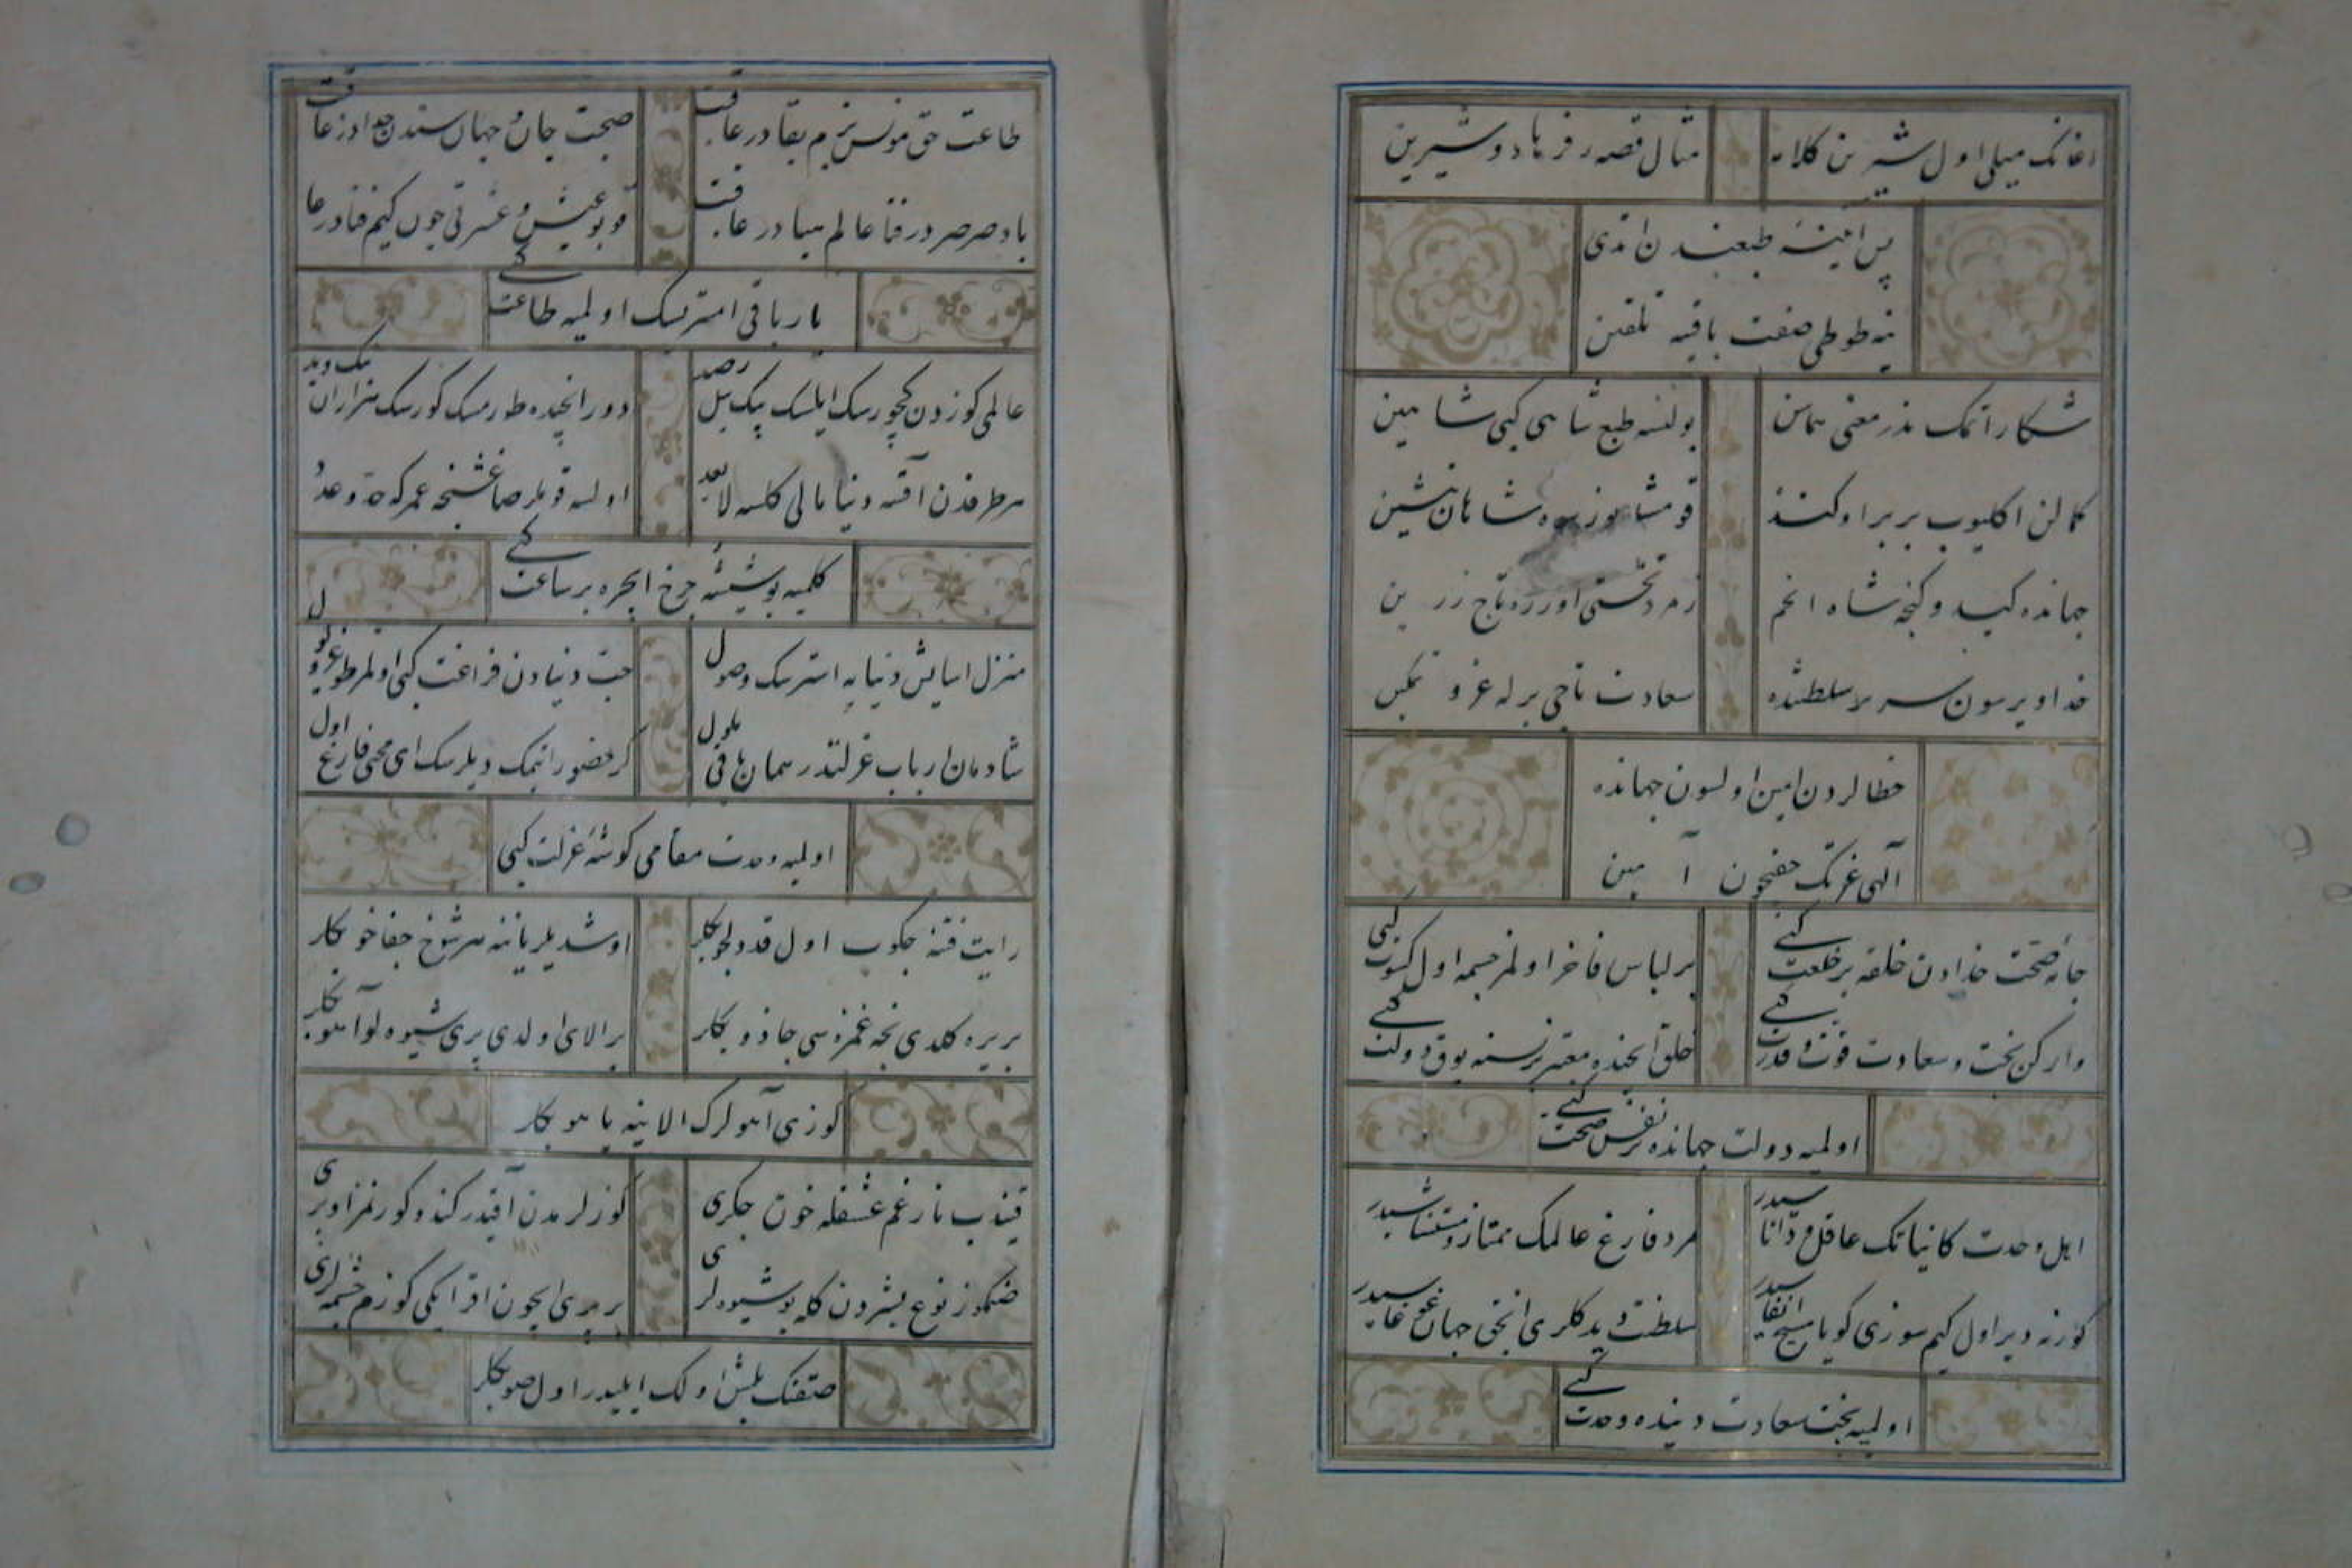 مثال قصهٔ فرهاد و شیرین
پس آیینه طبعندن اندی
نه طوطی صفت باقیه تلقین
شکار اتمک
بولنسه طبع شاهی کبی شاهین
جهانده شاه انجم
تاج زرین
خدا ویرسون سریر سلطنتده
سعادت تاجی برله عز و تمکین
خطالردن امین اولسون جهانده
آلهی عزتک حقیچون آمین
جامهٔ صحت خدادن خلقه بر خلعت کبی
بر لباس فاخر اولمز جسمه اول کسوت کبی
وارکن بخت و سعادت قوت و قدرت کبی
خلق ایچنده معتبر بر نسنه یوق دولت کبی
اولمیه دولت جهانده بر نفس صحت کبی
اهل وحدت کائناتک عاقل و داناسیدر
مرد فارغ عالمک ممتاز و مستثناسیدر
کور نه دیر اول کیم سوزی کویا مسیح انفاسیدر
سلطنت دیدکلری انجق جهان غوغاسیدر
اولمیه بخت و سعادت دنیده وحدت کبی
طاعت حق مونس بزم بقادر عاقبت
صحت جان و جهان سندن جدادر عاقبت
باد صرصر در فنا عالم هبادر عاقبت
قو بو عیش و عشرتی چون کیم فنادر عاقبت
یار باقی استرسک اولمیه طاعت کبی
عالمی کوزدن کچورسک ایلسک بیک بیل رصد
دور ایچیده طورمسک کورسک هزاران نیک و بد
هر طرفدن آقسه دنیا مالی کلسه لا یعد
اولسه قوملر صاغشنجه عمرکه حد و عدد
کلمیه بو شیشهٔ چرخ ایچره بر ساعت کبی
منزل اسایش دنیایه استرسک وصول
حب دنیادن فراغت کبی اولمز طوغرو یول
شادمان ارباب عزلتدر همان باقی ملول
کر حضور اتمک دیلرسک ای محبی فارغ اول
اولمیه وحدت مقامی کوشهٔ عزلت کبی
رایت فتنه چکوب اول قد دلجو بکلر
اوشدیلر یاننه هر شوخ جفاخو بکلر
بر یره کلدی نجه غمزه سی جادو بکلر
بر الای اولدی پری شیوه لو آهو بکلر
کوزی آهولرک الاینه یاهو بکلر
قیندب نار غم عشقله خون جکری
کوزلرمدن آقیدر کندو کورنمز او پری
نوع بشردن کله بو شیوه لری
بر پری ایچون اقر ایکی کوزم چشمه لری